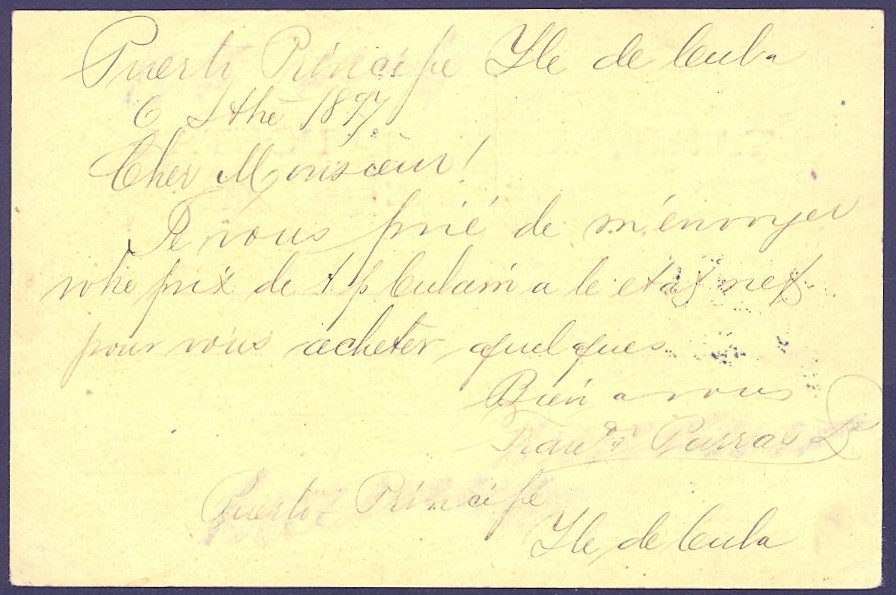 Puerto Principe Ile de Cuba
6 1897
Cher Monsieur!
Je vous prié de m'énvoyer
votre prix de t p Cubain a le etat neuf
pour vous acheter quelques
Bien a vous
Parras
Puerto-Principe
Ile de Cuba